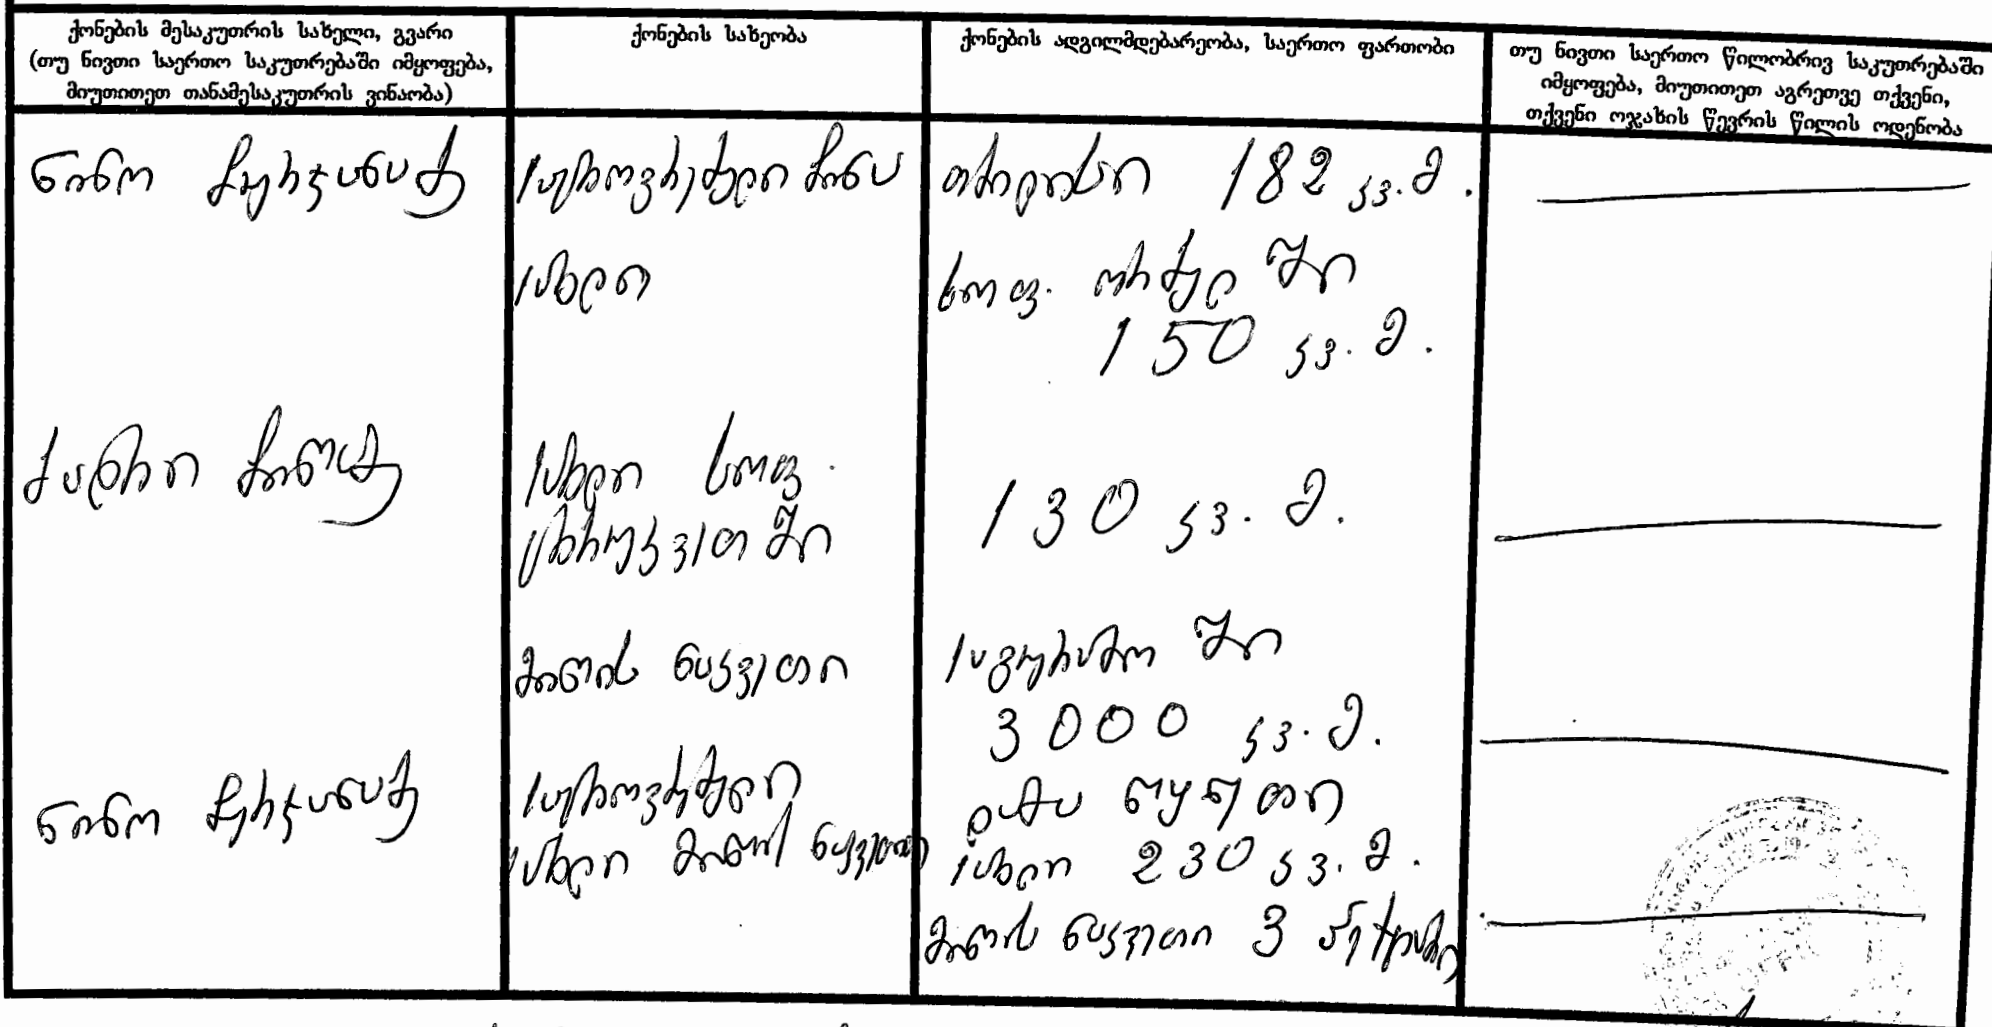 ქონების მესაკუთრის სახელი, გვარი
(თუ ნივთი საერთო საკუთრებაში იმყოფება,
მიუთითეთ თანამესაკუთრის ვინაობა)
ქონების სახეობა
ქონების ადგილმდებარეობა, საერთო ფართობი
თუ ნივთი საერთო წილობრივ საკუთრებაში
იმყოფება, მიუთითეთ აგრეთვე თქვენი,
თქვენი ოჯახის წევრის წილის ოდენობა
ნინო საცხოვრებელი ბინა თბილისი 182 კვ. მ.
სახლი სოფ. ში
150 კვ. მ.
სახლი სოფ.
130 კვ. მ.
მიწის ნაკვეთი საგურამო ში
3000 კვ. მ.
ნინო საცხოვრებელი დაბა წყნეთი
სახლი მიწის ნაკვეთი სახლი 230 კვ. მ.
მიწის ნაკვეთი 3 ჰექტარი